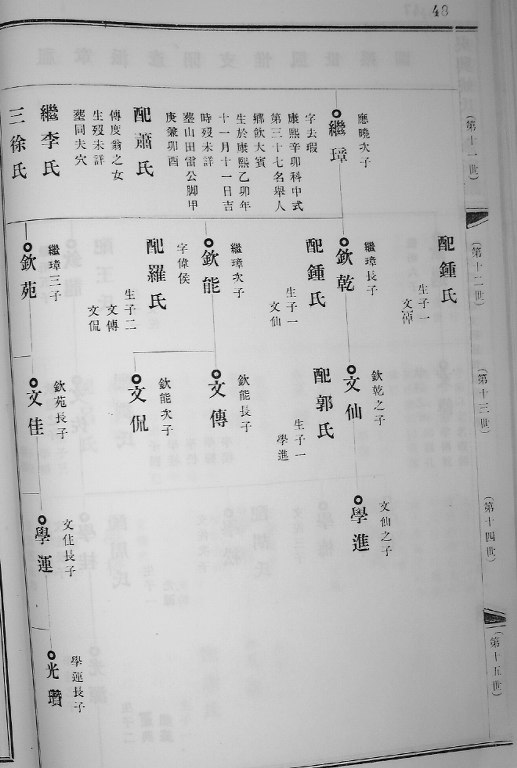 48
(第十一世)
應曉次子
繼璋
字去瑕
康熙辛卯科中式
第三十七名舉人
鄉飲大賓
生於康熙乙卯年
十一月十一日吉
時歿未詳
塟山田雷公脚甲
庚兼卯酉
配蕭氏
傳度翁之女
生歿未詳
塟同夫穴
繼李氏
三徐氏
(第十二世)
配鍾氏
生子一
繼璋長子
欽乾
配鍾氏
生子一
文仙
繼璋次子
欽能
字偉侯
配羅氏
生子二
文傳
文侃
繼璋三子
欽苑
(第十三世)
欽乾之子
文仙
配郭氏
生子一
學進
欽能長子
文傳
欽能次子
文侃
欽苑長子
文佳
(第十四世)
文仙之子
學進
文佳長子
學運
(第十五世)
學運長子
光瓚